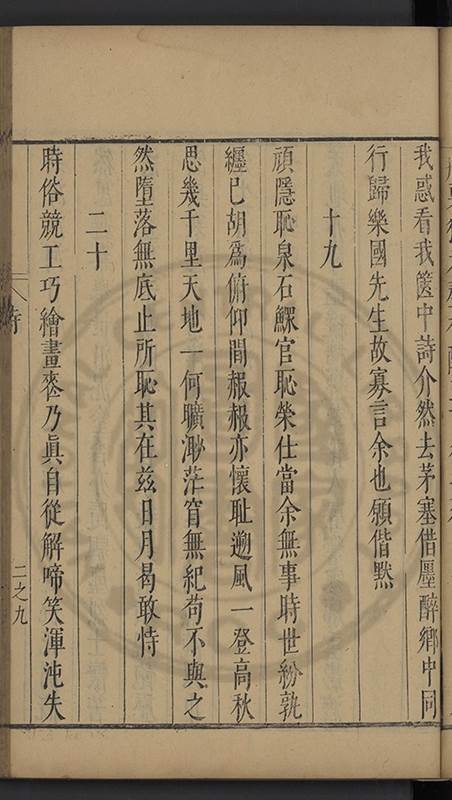 我惑看我篋中詩介然去茅塞借壓醉鄉中同
行歸樂國先生故寡言余也願偕默
十九
頑隱恥泉石鰥官恥榮仕當余無事時世紛孰
纏已胡爲俯仰間赧赧亦懷恥遡風一登高秋
思幾千里天地一何曠渺茫窅無紀苟不與之
然墮落無底止所恥其在兹日月曷敢恃
二十
時俗競工巧繪畫乃眞自從解啼笑渾沌失
二之九